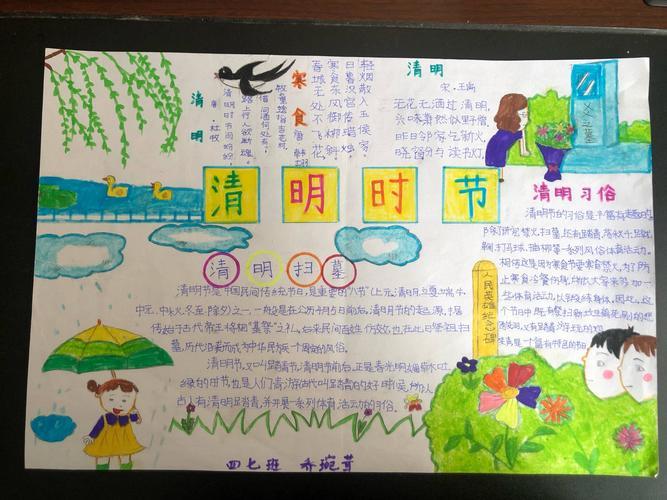 清明
唐·杜牧
清明时节雨纷纷,
路上行人欲断魂。
借问酒家何处有,
牧童遥指杏花村。
寒食
唐 韩翃
春城无处不飞花,
寒食东风御柳斜。
日暮汉宫传蜡烛,
轻烟散入五侯家。
清明
宋·王禹
无花无酒过清明,
兴味萧然似野僧。
昨日邻家乞新火,
晓窗分与读书灯。
父之墓
清明时节
清明扫墓
清明节是中国民间传统节日,是重要的“八节”(上元、清明、立夏、端午、
中元、中秋、冬至、除夕)之一,一般是在公历4月5日前后,清明节的起源,据
传始于古代帝王将相“墓祭”之礼,后来民间百姓仿效,也在此日祭祖扫
墓,历代沿袭而成为中华民族一个固定的风俗。
清明节,又叫踏青节,清明节前后,正是春光明媚草木吐
绿的时节,也是人们春游(古代叫踏青)的好时候,所以
古人有清明踏青,并开展一系列体育活动的习俗。
清明习俗
清明节的习俗是丰富有趣的,
除了讲究禁火、扫墓,还有踏青、荡秋千、踢蹴
鞠、打马球、插柳等一系列风俗体育活动。
相传这是因为寒食节要寒食禁火,为了防
止寒食冷餐伤身,所以大家来参加一
些体育活动,以锻炼身体。因此,这
个节日中既有祭扫新坟生
又有踏青游玩的欢
笑声,是一个富有特色的节日。
人民英雄纪念碑
四七班 乔琬茸